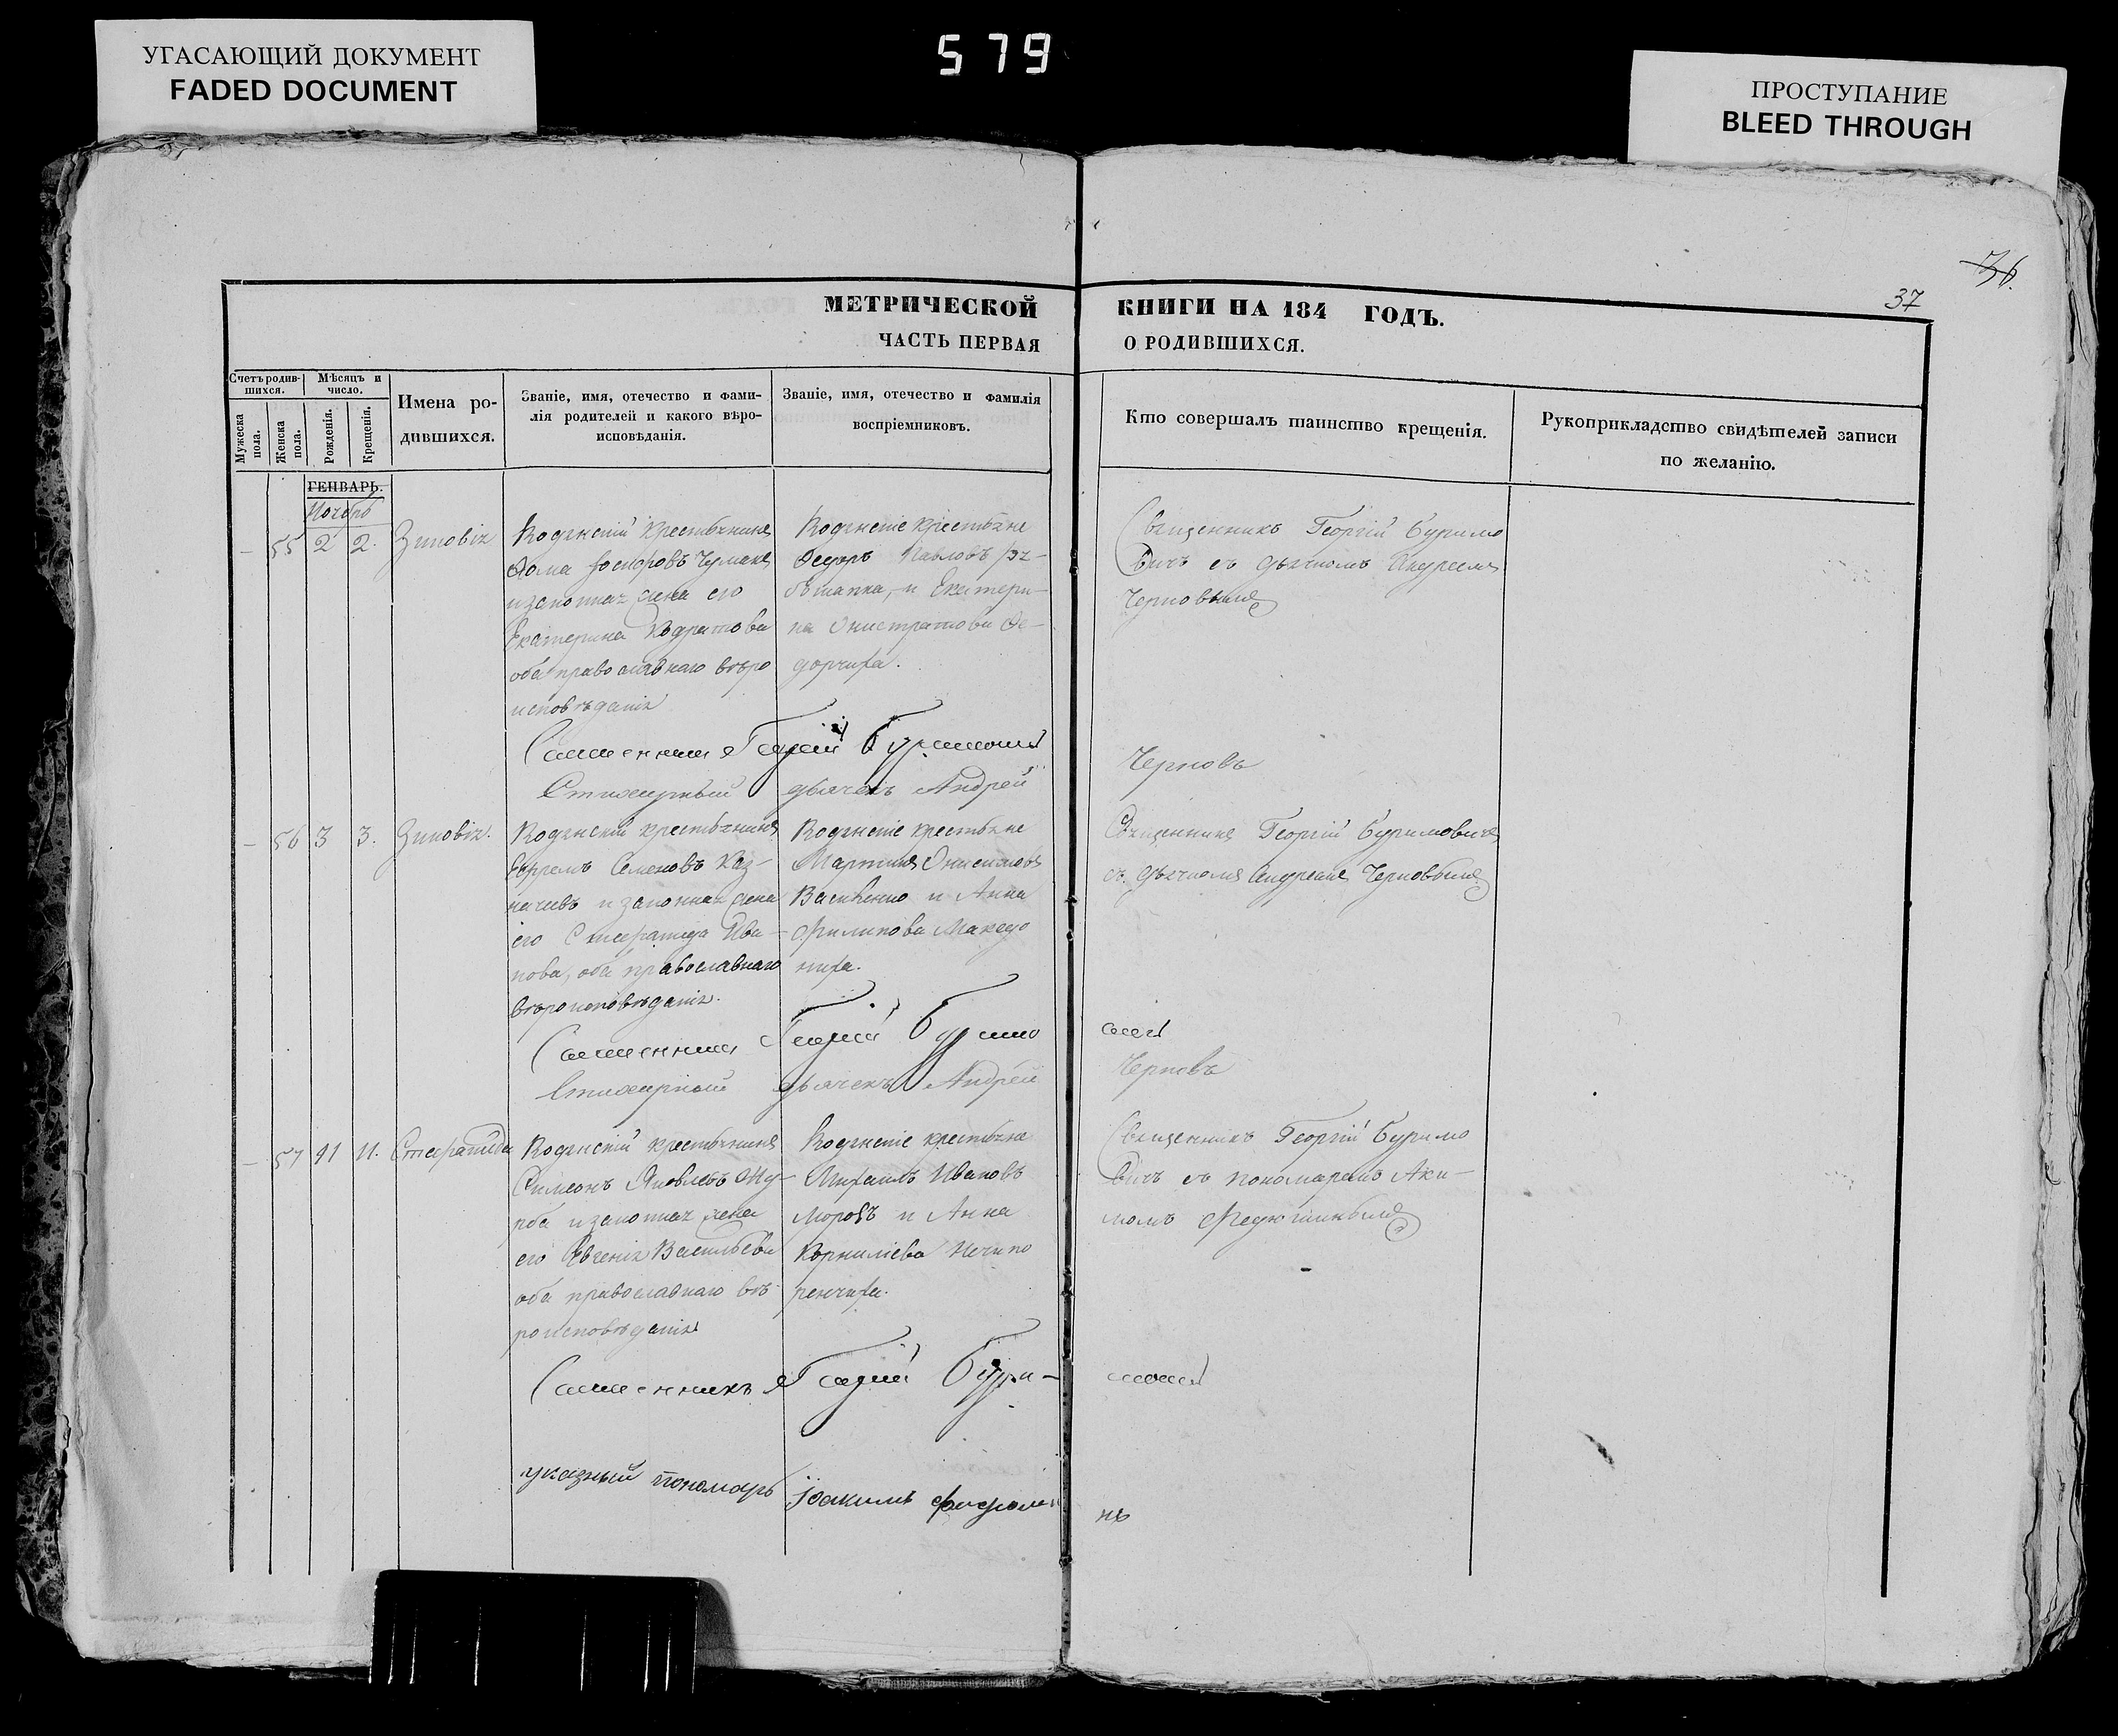 УГАСАЮЩИЙ ДОКУМЕНТ
FADED DOCUMENT
579
ПРОСТУПАНИЕ
BLEED THROUGH
36.
37
МЕТРИЧЕСКОЙ КНИГИ НА 184 ГОДЪ.
ЧАСТЬ ПЕРВАЯ О РОДИВШИХСЯ.
Счетъ родив-
шихся.
Мужеска
пола.
Женска
пола.
Мѣсяцъ и
число.
Рожденія.
Крещенія.
Имена ро-
дившихся.
Званіе, имя, отечество и фами-
лія родителей и какого вѣро-
исповѣданія.
Званіе, имя, отечество и фамилія
воспріемниковъ.
Кто совершалъ таинство крещенія.
Рукоприкладство свидѣтелей записи
по желанію.
ГЕНВАРЬ.
Ноябрь
– 55 2 2. Зиновія
Кодянскій крестьянинъ
Фома Іосифовъ Чумакъ
и законная жена его
Екатерина Кодратова
оба православнаго вѣро
исповѣданія
Кодянскіе крестьяне
Федоръ Павловъ
и Екатери-
на Онистратова Фе-
дорчиха.
Священникъ Георгій Буримо
вичъ съ дьячкомъ Андреемъ
Черновымъ
Священникъ Георгій Буримовичъ
Стихарный дьячекъ Андрей Черновъ
– 56 3 3. Зиновія.
Кодянскій крестьянинъ
Ефремъ Семеновъ Каз-
начевъ и законная жена
его Степанида Ива-
нова, оба православнаго
вѣроисповѣданія.
Кодянскіе крестьяне
Мартинъ Онисимовъ
Василенко и Анна
Филипова Македо
ниха.
Священникъ Георгій Буримовичъ
съ дьячкомъ Андреемъ Черновымъ
Священникъ Георгій Буримо вичъ
Стихарный дьячекъ Андрей Черновъ
– 57 11 11. Степанида
Кодянскій крестьянинъ
Симеонъ Яковлевъ Жу-
рба и законная жена
его Евгенія Васильева
оба православнаго вѣ-
роисповѣданія
Кодянскіе крестьяне
Михаилъ Ивановъ
Морозъ и Анна
Корниліева Нечипо
ренчиха.
Священникъ Георгій Буримо
вичъ съ пономаремъ Аки-
момъ Федюшинымъ
Священникъ Георгій Бури- мовичъ
указный пономарь Іоакимъ
нъ